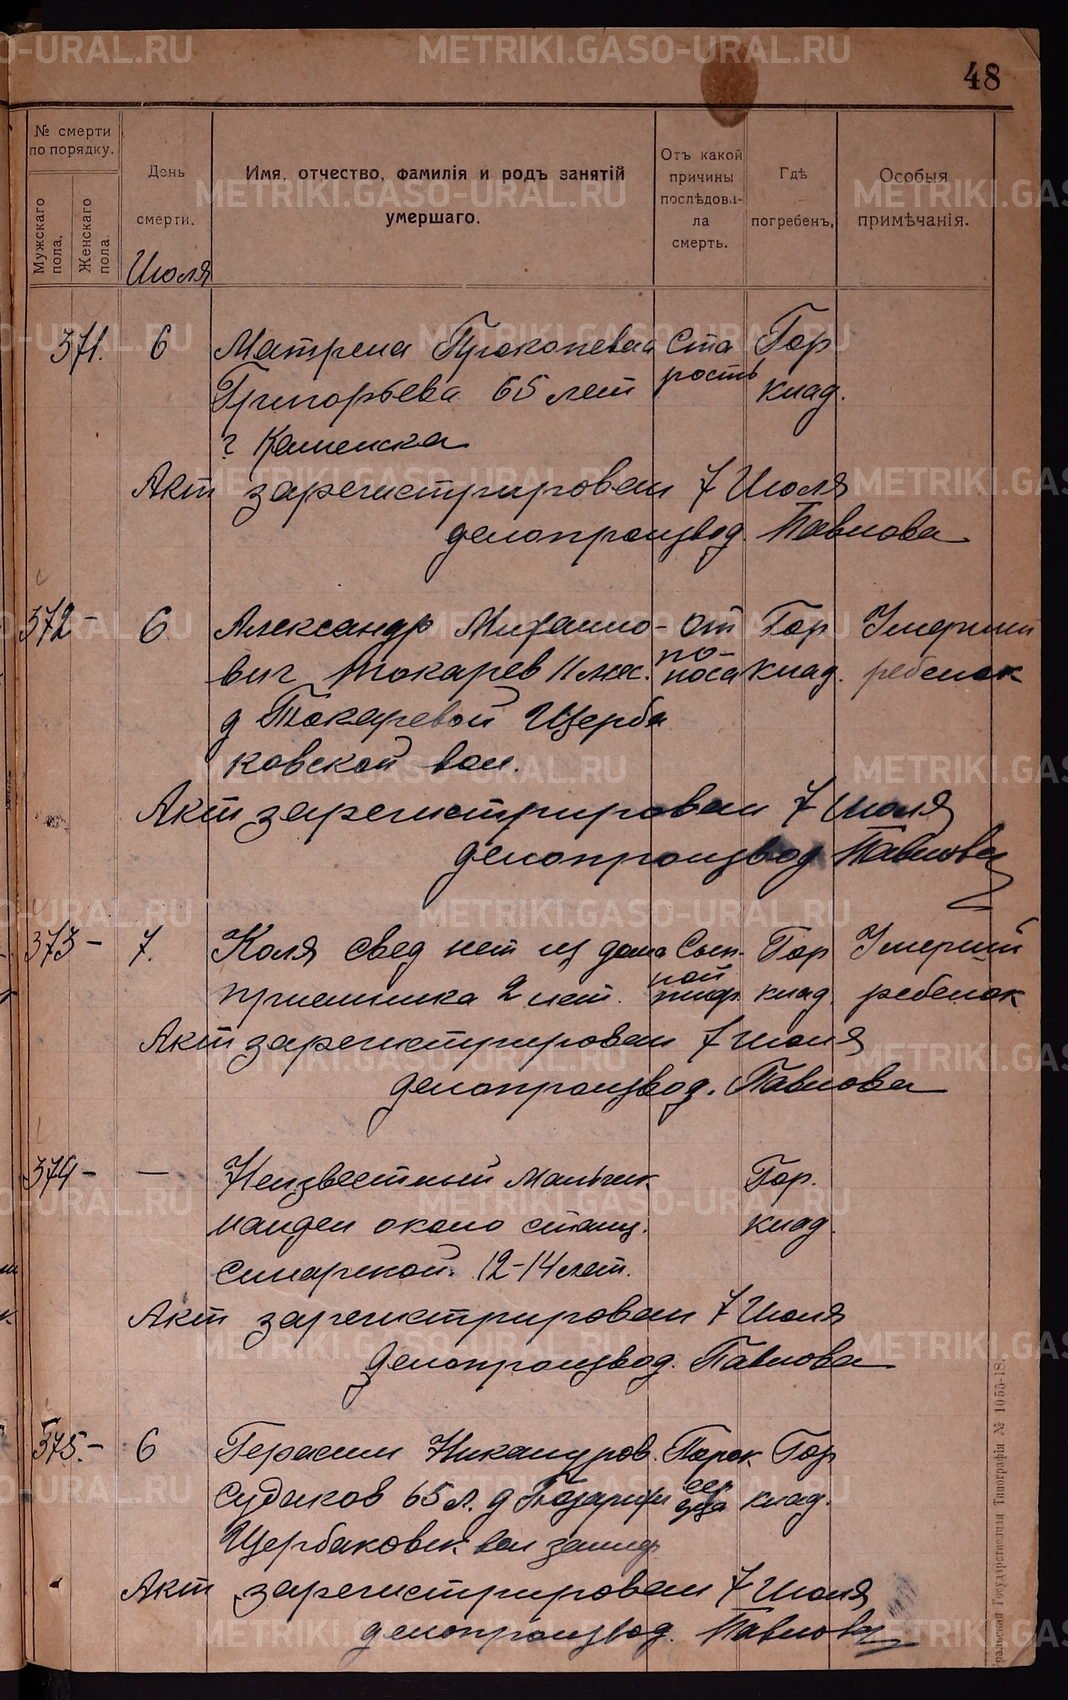 48
№ смерти
по порядку.
Мужскаго
пола.
Женскаго
пола.
День
смерти.
Имя, отчество, фамилія и родъ занятій
умершаго.
Отъ какой
причины
послѣдова-
ла
смерть.
Гдѣ
погребенъ.
Особыя
примѣчанія.
Июля
371. 6 Матрена Прокопевна Ста Гор
Григорьева 65 лет рость клад.
г Каменска
Акт зарегистрирован 7 Июля
делопроизвод. Павлова
372 - 6 Александр Михаило- От Гор Умерший
вич Токарев 11 мес. по-носа клад. ребенок
д Токаревой Щерба
ковской вол.
Акт зарегистрирован 7 Июля
делопроизвод Павлова
373 - 7. Коля свед нет из дома Сып- Гор Умерший
приемника 2 лет. ной тиф. клад. ребенок
Акт зарегистрирован 7 июля
делопроизвод. Павлова
374 - — Неизвестный мальчик Гор.
найден около станц. клад.
Синарской. 12-14 лет.
Акт зарегистрирован 7 Июля
делопроизвод. Павлова
375. - 6 Герасим Никандров. Порок Гор
Судаков 65 л. д сер дца клад.
Щербаковск. вол
Акт зарегистрирован 7 Июля
делопроизвод. Павлова
Уральская Государственная Типографія № 1055-18.
METRIKI.GASO-URAL.RU